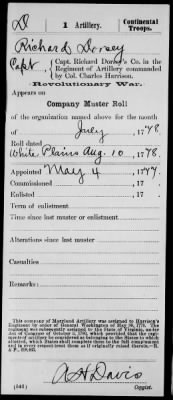 D | 1 Artillery. | Continental Troops.
Richard Dorsey
Capt., Capt. Richard Dorsey's Co. in the Regiment of Artillery commanded by Col. Charles Harrison.
Revolutionary War.
Appears on
Company Muster Roll
of the organization named above for the month
of July, 1778.
Roll dated
White Plains Aug. 10, 1778.
Appointed May 4, 1777.
Commissioned , 17 .
Enlisted , 17 .
Term of enlistment
Time since last muster or enlistment
Alterations since last muster
Casualties
Remarks:
This company of Maryland Artillery was assigned to Harrison's
Regiment by order of General Washington of May 30, 1778. The
regiment was subsequently assigned to the State of Virginia, under
Act of Congress of October 3, 1780, which provided that the regi-
ments of artillery be considered as belonging to the States to which
allotted, which States shall complete them to the full complement
and in every respect treat them as if originally raised therein.—R.
& P.
(543)
A H Davis
Copyist.